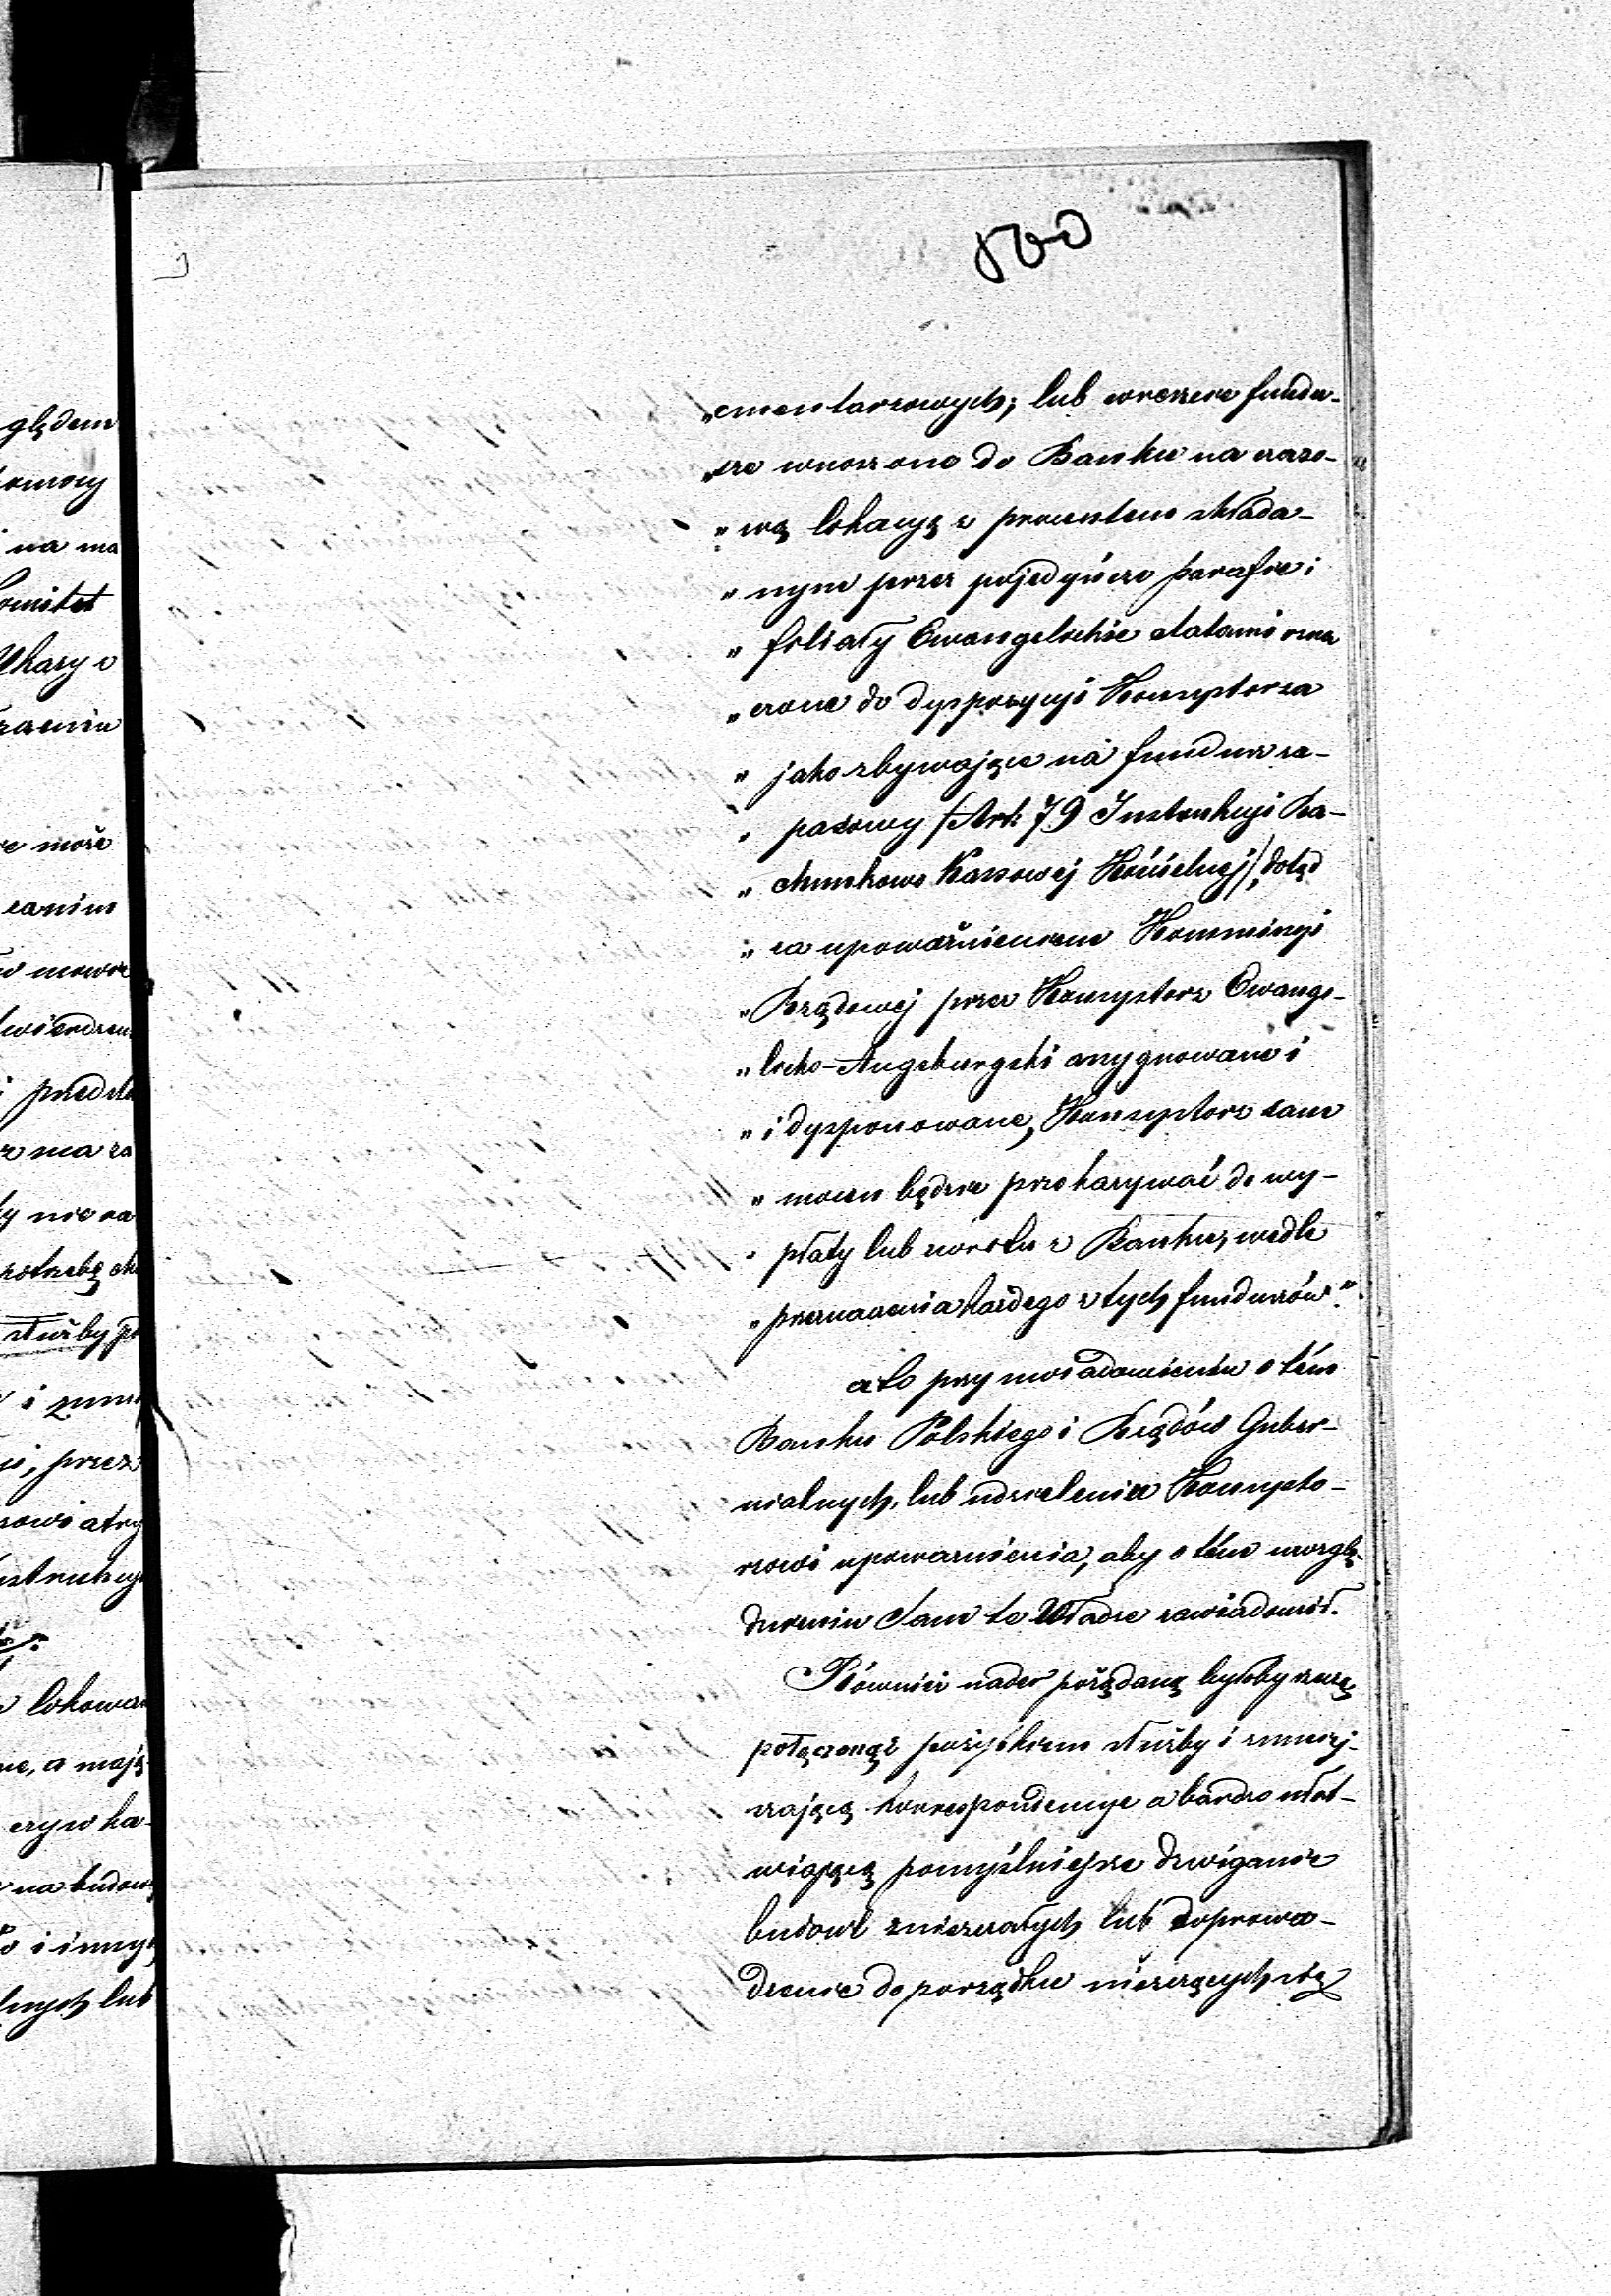 500
„ementarzowych; lub wreszcie fundu-
„sze wnoszone do Banku na czaso-
„wą lokacyą z procentem składa-
„nym przez pojedyńcze parafie i
„filiały Ewangelickie etatami ozna
„czone do dyspozycji Konsystorza
„jako zbywające na fundusz za-
„pasowy /Art: 79 Instrukcyi Ra-
„chunkowo Kassowej Kościelnej/, dotąd
„za upoważnieniem Kommissyi
„Rządowej przez Konsystorz Ewange-
„licko-Augsburgski assygnowane i
„i dysponowane, Konsystorz sam
„mocen będzie przekazywać do wy-
„płaty lub zwrotu z Banku, wedle
„przeznaczenia każdego z tych funduszów".
a to przy uwiadomieniu o tém
Banku Polskiego i Rządów Guber-
nialnych, lub udzielenia Konsysto-
rzowi upoważnienia, aby o tém uwzglę-
dnieniu sam te Władze zawiadomił.
Również nader pożądaną byłoby rzeczą
połączoną z pożytkiem służby i zmniej-
szającą korrespondencye a bardzo ułat-
wiającą pomyślniejsze dzwiganie
budowl zniszczałych lub doprowa-
dzenie do porządku niszczących się
ględem
na ma
Komitet
może
przez
służby
lokowan
na budowę
i innych
lnych lub